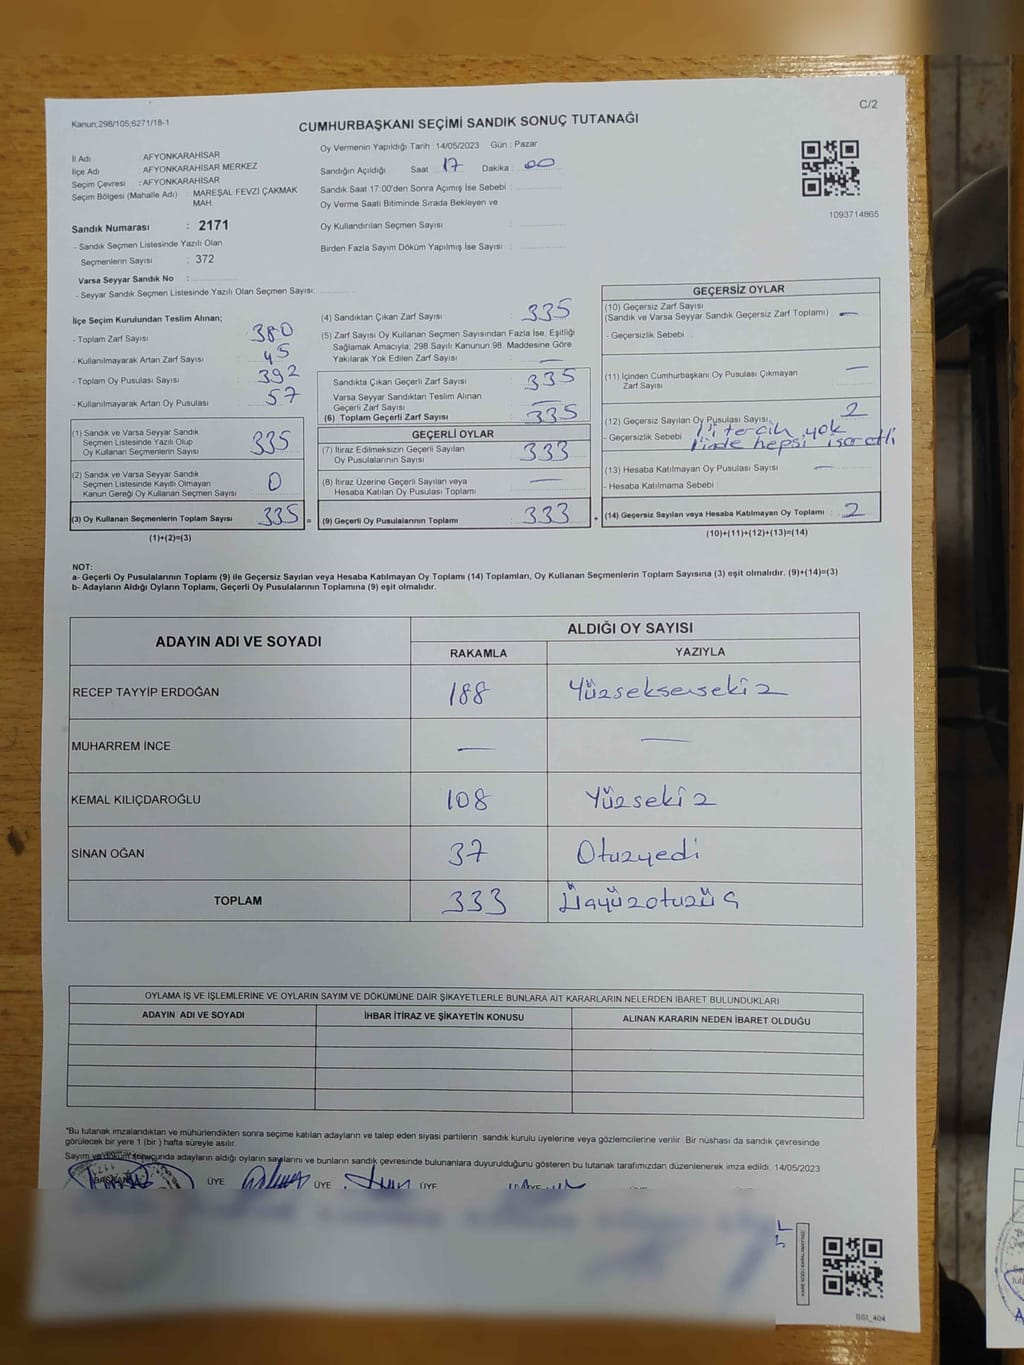 C/2
Kanun;298/105;6271/18-1
CUMHURBAŞKANI SEÇİMİ SANDIK SONUÇ TUTANAĞI
İl Adı AFYONKARAHİSAR
İlçe Adı AFYONKARAHİSAR MERKEZ
Seçim Çevresi : AFYONKARAHİSAR
Seçim Bölgesi (Mahalle Adı) : MAREŞAL FEVZİ ÇAKMAK
MAH
Sandık Numarası : 2171
- Sandık Seçmen Listesinde Yazılı Olan
Seçmenlerin Sayısı : 372
Varsa Seyyar Sandık No :
- Seyyar Sandık Seçmen Listesinde Yazılı Olan Seçmen Sayısı:
Oy Vermenin Yapıldığı Tarih : 14/05/2023 Gün : Pazar
Sandığın Açıldığı Saat 17 Dakika 00
Sandık Saat 17:00'den Sonra Açımış İse Sebebi :
Oy Verme Saati Bitiminde Sırada Bekleyen ve
Oy Kullandırılan Seçmen Sayısı :
Birden Fazla Sayım Döküm Yapılmış İse Sayısı :
1093714865
İlçe Seçim Kurulundan Teslim Alınan;
- Toplam Zarf Sayısı : 380
- Kullanılmayarak Artan Zarf Sayısı : 45
- Toplam Oy Pusulası Sayısı : 392
- Kullanılmayarak Artan Oy Pusulası : 57
(1) Sandık ve Varsa Seyyar Sandık
Seçmen Listesinde Yazılı Olup
Oy Kullanan Seçmenlerin Sayısı : 335
(2) Sandık ve Varsa Seyyar Sandık
Seçmen Listesinde Kayıtlı Olmayan
Kanun Gereği Oy Kullanan Seçmen Sayısı : 0
(3) Oy Kullanan Seçmenlerin Toplam Sayısı : 335 =
(1)+(2)=(3)
(4) Sandıktan Çıkan Zarf Sayısı : 335
(5) Zarf Sayısı Oy Kullanan Seçmen Sayısından Fazla İse, Eşitliği
Sağlamak Amacıyla; 298 Sayılı Kanunun 98. Maddesine Göre
Yakılarak Yok Edilen Zarf Sayısı : —
Sandıkta Çıkan Geçerli Zarf Sayısı : 335
Varsa Seyyar Sandıktan Teslim Alınan
Geçerli Zarf Sayısı : —
(6) Toplam Geçerli Zarf Sayısı : 335
GEÇERLİ OYLAR
(7) İtiraz Edilmeksizin Geçerli Sayılan
Oy Pusulalarının Sayısı : 333
(8) İtiraz Üzerine Geçerli Sayılan veya
Hesaba Katılan Oy Pusulası Toplamı : —
(9) Geçerli Oy Pusulalarının Toplamı : 333 +
GEÇERSİZ OYLAR
(10) Geçersiz Zarf Sayısı
(Sandık ve Varsa Seyyar Sandık Geçersiz Zarf Toplamı) : —
- Geçersizlik Sebebi :
(11) İçinden Cumhurbaşkanı Oy Pusulası Çıkmayan
Zarf Sayısı : —
(12) Geçersiz Sayılan Oy Pusulası Sayısı : 2
- Geçersizlik Sebebi : 1'i tercih yok
1'inde hepsi işaretli
(13) Hesaba Katılmayan Oy Pusulası Sayısı : —
- Hesaba Katılmama Sebebi :
(14) Geçersiz Sayılan veya Hesaba Katılmayan Oy Toplamı : 2
(10)+(11)+(12)+(13)=(14)
NOT:
a- Geçerli Oy Pusulalarının Toplamı (9) ile Geçersiz Sayılan veya Hesaba Katılmayan Oy Toplamı (14) Toplamları, Oy Kullanan Seçmenlerin Toplam Sayısına (3) eşit olmalıdır. (9)+(14)=(3)
b- Adayların Aldığı Oyların Toplamı, Geçerli Oy Pusulalarının Toplamına (9) eşit olmalıdır.
ADAYIN ADI VE SOYADI
ALDIĞI OY SAYISI
RAKAMLA YAZIYLA
RECEP TAYYİP ERDOĞAN 188 Yüzseksensekiz
MUHARREM İNCE — —
KEMAL KILIÇDAROĞLU 108 Yüzsekiz
SİNAN OĞAN 37 Otuzyedi
TOPLAM 333 Üçyüzotuzüç
OYLAMA İŞ VE İŞLEMLERİNE VE OYLARIN SAYIM VE DÖKÜMÜNE DAİR ŞİKAYETLERLE BUNLARA AİT KARARLARIN NELERDEN İBARET BULUNDUKLARI
ADAYIN ADI VE SOYADI İHBAR İTİRAZ VE ŞİKAYETİN KONUSU ALINAN KARARIN NEDEN İBARET OLDUĞU
*Bu tutanak imzalandıktan ve mühürlendikten sonra seçime katılan adayların ve talep eden siyasi partilerin sandık kurulu üyelerine veya gözlemcilerine verilir. Bir nüshası da sandık çevresinde
görülecek bir yere 1 (bir) hafta süreyle asılır.
Sayım ve döküm sonucunda adayların aldığı oyların sayılarını ve bunların sandık çevresinde bulunanlara duyurulduğunu gösteren bu tutanak tarafımızdan düzenlenerek imza edildi. 14/05/2023
BAŞKAN ÜYE ÜYE ÜYE ÜYE
BSI_404